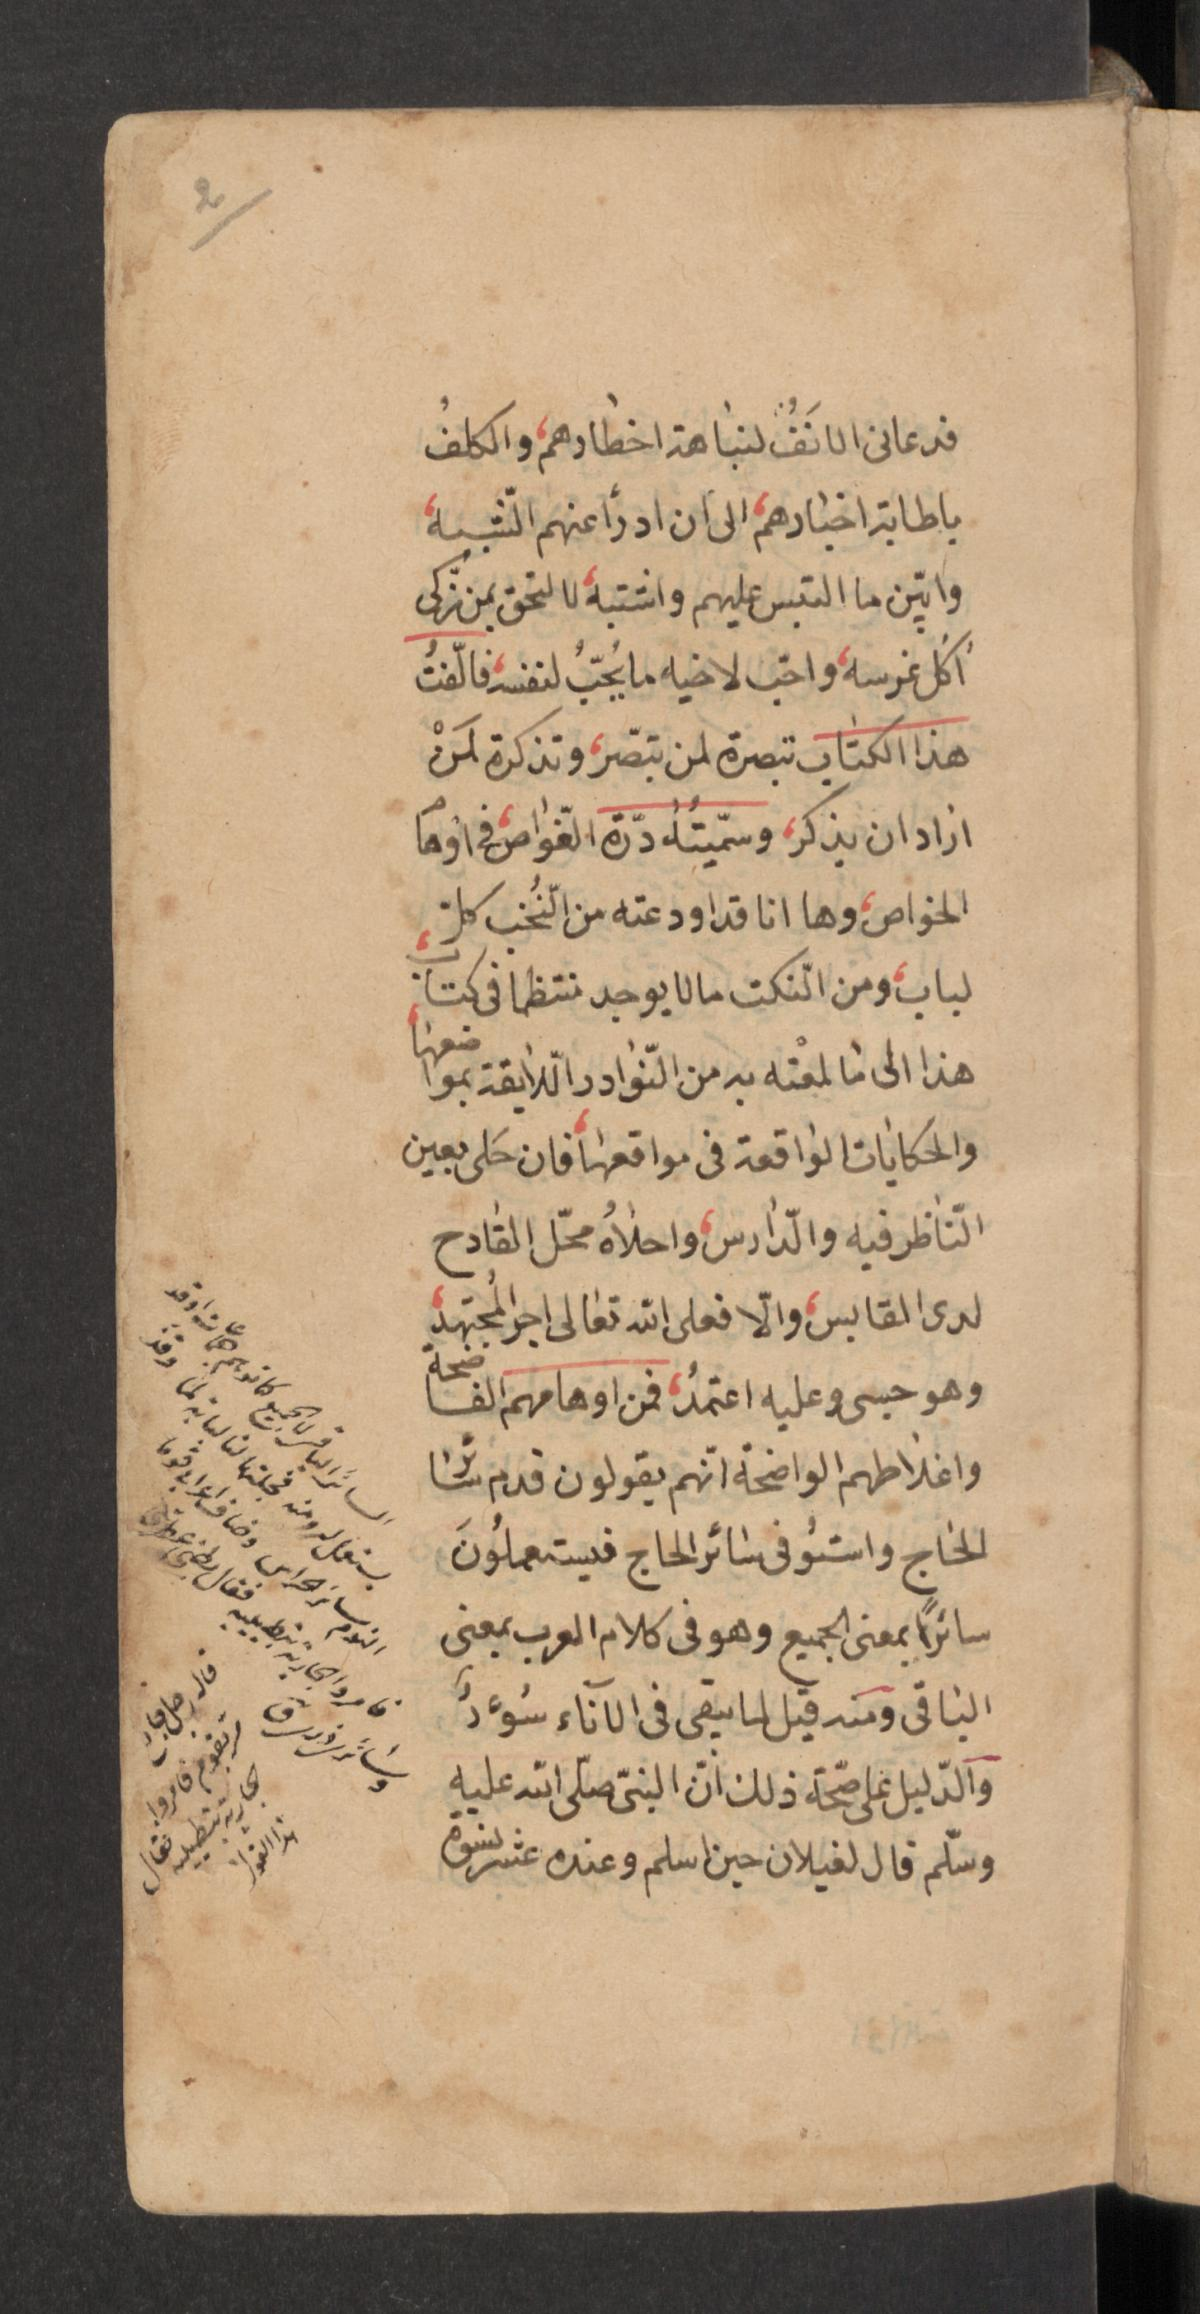 2
فدعانى الانَفُ لنباهة اخطارهم، والكلفُ
باطابة اخبارهم، الى ان ادرأ عنهم الشّبه،
وابيّن ما التبس عليهم واشتبه، لالتحق بمن زكّى
أُكُل غرسه، واحبّ لاخيه ما يُحبّ لنفسه، فالّفتُ
هذا الكتاب تبصرة لمن تبصّر، وتذكرة لمَنْ
اراد ان يذكر، وسمّيتُه درّة الغوّاص، فى اوهام
الخواص، وها انا قد اودعته من النُّخب كلّ
لباب، ومن النّكت ما لا يوجد منتظما فى كتاب،
هذا الى ما لمعْته به من النّوادر اللّايقة بمواضعها،
والحكايات الواقعة فى مواقعها، فان حَلى بعين
النّاظر فيه والدّارس، واحلاهُ محّل القادح
لدى القابس، والّا فعلى الله تعالى اجر المُجتهد،
وهو حسبى وعليه اعتمدُ، فمن اوهامهم الفاضحة
واغلاطهم الواضحة انّهم يقولون قدم سائر
الحاج واستُوفى سائر الحاج فيستعملُونَ
سائرًا بمعنى الجميع وهو فى كلام العرب بمعنى
الباقى ومنه قيل لما يبقى فى الآناء سُؤرٌ
والدّليل على صّحة ذلك انّ النبىّ صلّى الله عليه
وسلّم قال لغيلان حين اسلم وعنده عشر نسوة
السائر الباقى لا الجميع كما توهم جماعات او قد
يستعمل له ومنه
فامروا الجارية بتطييبه فقال بطنى عطرى
وسائرى ذرى